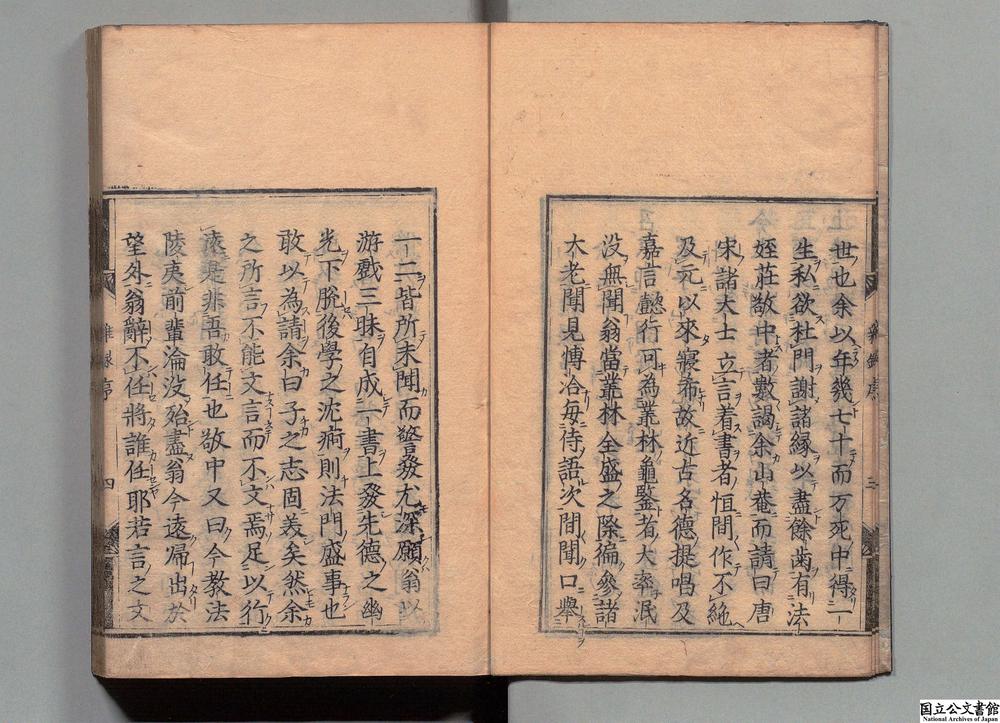 世也余以年幾七十而万死中得一
生私欲杜門謝諸縁以盡餘歯有法
姪莊敬中者數謁余山菴而請曰唐
宋諸大士立言着書者恒間作不絶
及元以來寝希故近古名德提唱及
嘉言懿行可為叢林龜鑒者大率泯
没無聞翁當叢林全盛之際徧參諸
大老聞見博洽每侍語次間聞口舉
一二皆所未聞而警發尤深願翁以
游戲三昧自成一書上發先德之幽
光下脫後學之沈痾則法門盛事也
敢以為請余曰子之志固美矣然余
之所言不能文言而不文焉足以行
遠是非吾敢任也敬中又曰今教法
陵夷前輩淪没殆盡翁今遠歸出於
望外翁辭不任將誰任耶若言之文
雜録序
三
四
国立公文書館
National Archives of Japan